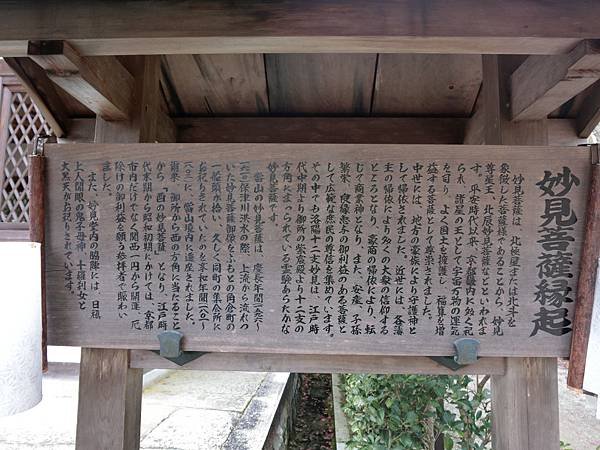 妙見菩薩縁起
妙見菩薩は、北極星または北斗を
象徴した菩薩様であることから、妙見
尊星王、北辰妙見菩薩などといわれま
す。平安時代以来、京都畿内に多く祀
られ、諸星の王として宇宙万物の運気
を司り、よく国土を擁護し、福寿を増
益する菩薩として尊崇されました。
中世には、地方の豪族により守護神と
して帰依されました。近世には、各藩
主の帰依により多くの大衆の信仰する
ところとなり、豪商の帰依により、転
じて商業神となり、また、安産、子孫
繁栄、良縁恵与の御利益のある菩薩と
して広範な庶民の尊信を集めています。
その中でも洛陽十二支妙見は、江戸時
代中期より御所の紫宸殿より十二支の
方角にまつられている霊験あらたかな
妙見菩薩です。
当山の妙見菩薩は、慶長年間(一五九六〜
一六一五)保津川洪水の際、上流から流れつ
いた妙見菩薩御像をふもとの角倉町の
一船頭が拾い、久しく同町の集会所に
お祀りされていたのを享和年間(一八〇一〜
一八〇三)、当山境内に遷座されました。
爾来、御所から西の方角に当たること
から「酉の妙見菩薩」となり、江戸時
代末期から昭和初期にかけては、京都
市内だけでなく関西一円から開運、厄
除けの御利益を願う参拝者で賑わい
ました。
また、妙見堂内の脇陣には、日禎
上人開眼の鬼子母神、十羅刹女と
大黒天がお祀りされています。